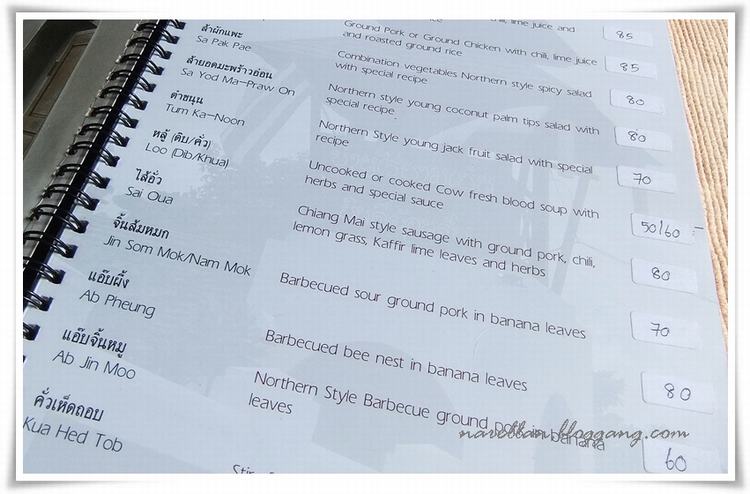 ส้าผักแพะ
Sa Pak Pae
ส้ายอดมะพร้าวอ่อน
Sa Yod Ma-Praw On
ตำขนุน
Tum Ka-Noon
หลู้ (ดิบ/คั่ว)
Loo (Dib/Khua)
ไส้อั่ว
Sai Oua
จิ้นส้มหมก
Jin Som Mok/Nam Mok
แอ๊บผึ้ง
Ab Pheung
แอ๊บจิ้นหมู
Ab Jin Moo
คั่วเห็ดถอบ
Kua Hed Tob
chili, lime juice and
rice
Ground Pork or Ground Chicken with chili, lime juice
and roasted ground rice
Combination vegetables Northern style spicy salad
with special recipe
Northern style young coconut palm tips salad with
special recipe
Northern Style young jack fruit salad with special
recipe
Uncooked or cooked Cow fresh blood soup with
herbs and special sauce
Chiang Mai style sausage with ground pork, chili,
lemon grass, Kaffir lime leaves and herbs
Barbecued sour ground pork in banana leaves
Barbecued bee nest in banana leaves
Northern Style Barbecue ground pork in banana
leaves
85
85
80
80
70
50/60 -
80
70
80
60